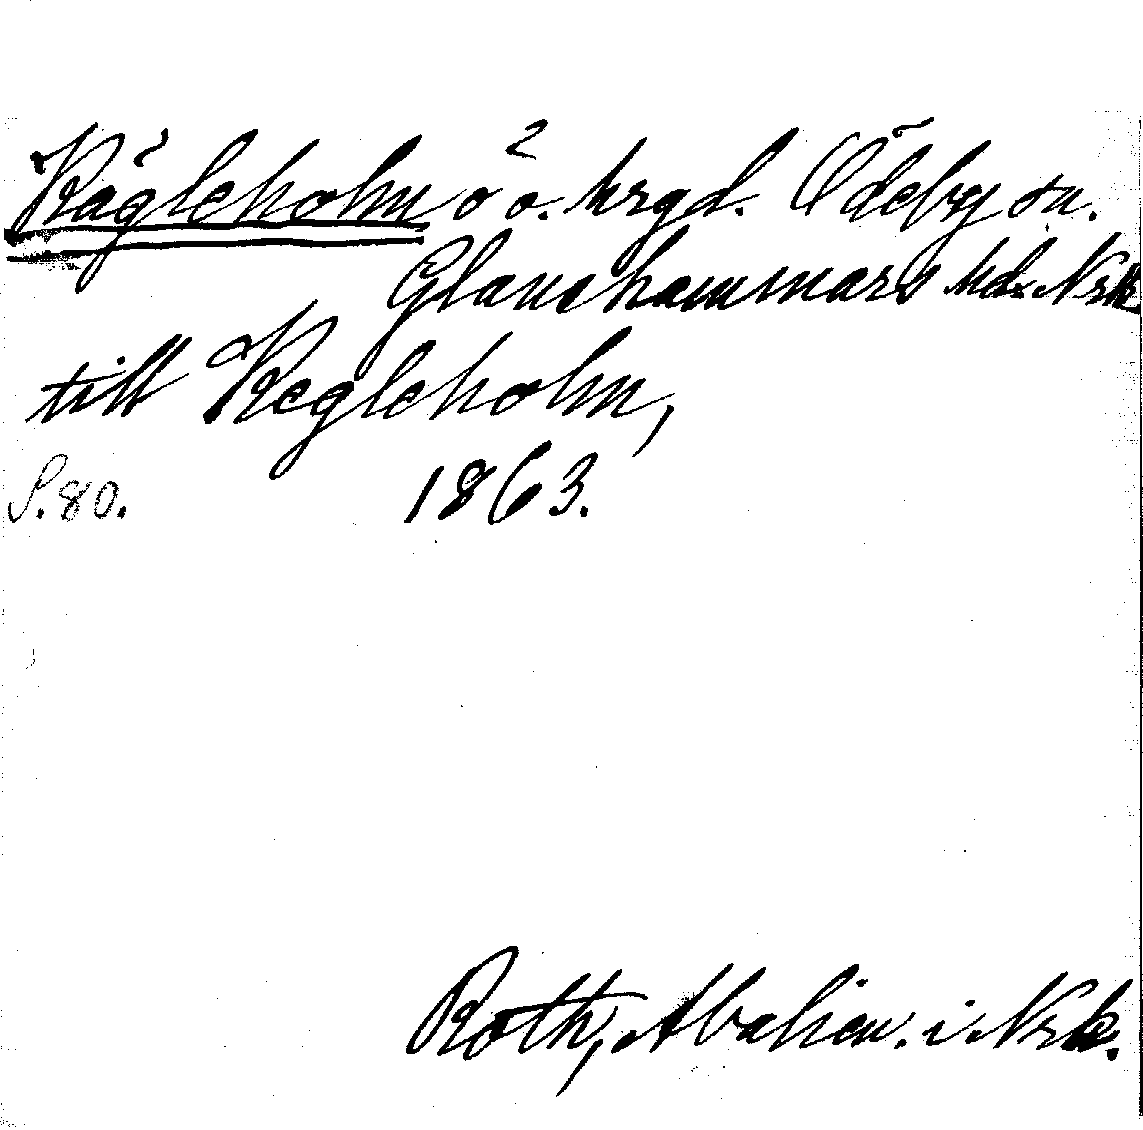 Kägleholm ö o. hrgd. Ödeby sn.
Glanshammars hd. Nrk
till Kegleholm,
S. 80. 1863.
Roth, i Nrk.